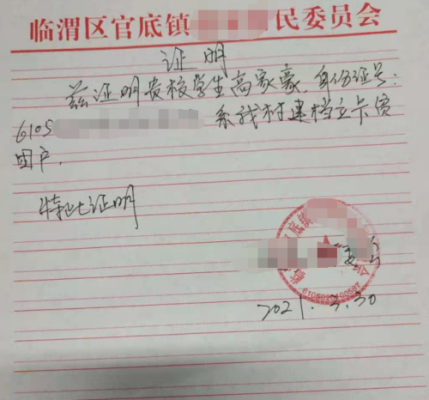 临渭区官底镇 民委员会
证明
兹证明贵校学生高家豪,身份证号:
6105 系我村建档立卡贫
困户.
特此证明
2021.3.30